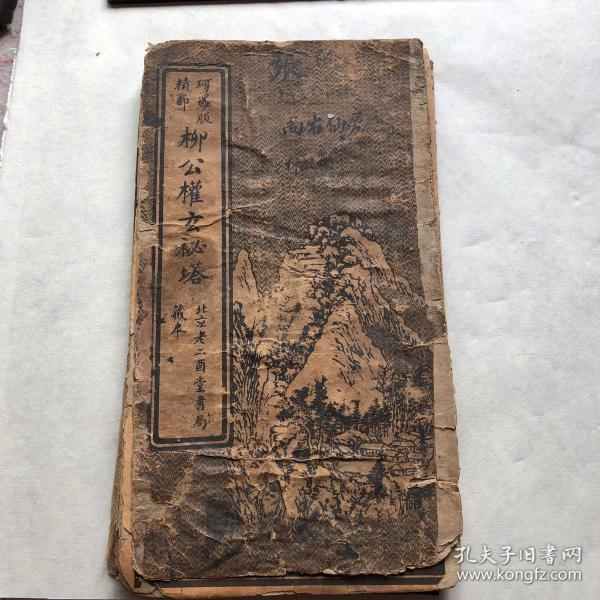 珂羅版
精印
柳公權玄秘塔
北京老二酉堂書局
藏本
孔夫子旧書网
www.kongfz.com